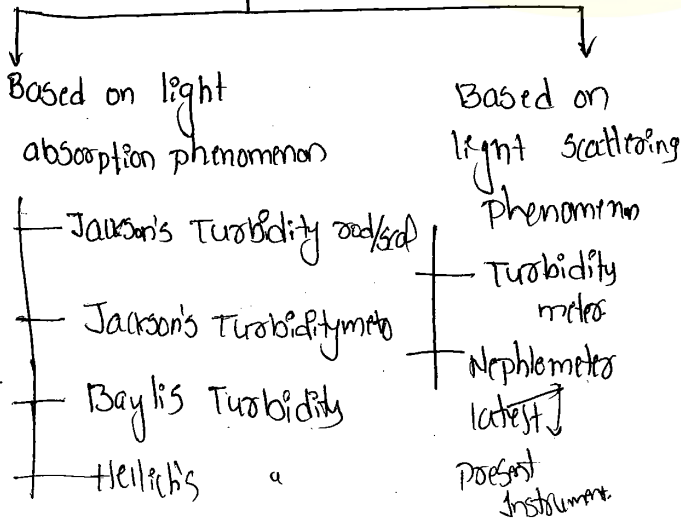 Based on light
absorption phenomenon
Jackson's Turbidity rod/
Jackson's Turbiditymeto
Baylis Turbidity
Hellich's "
Based on
light Scattering
phenomenon
Turbidity
meter
Nephlometer
latest
Present
Instrument.